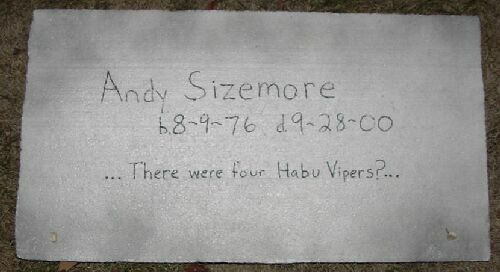 Andy Sizemore
b.8-9-76 d.9-28-00
... There were four Habu Vipers?...